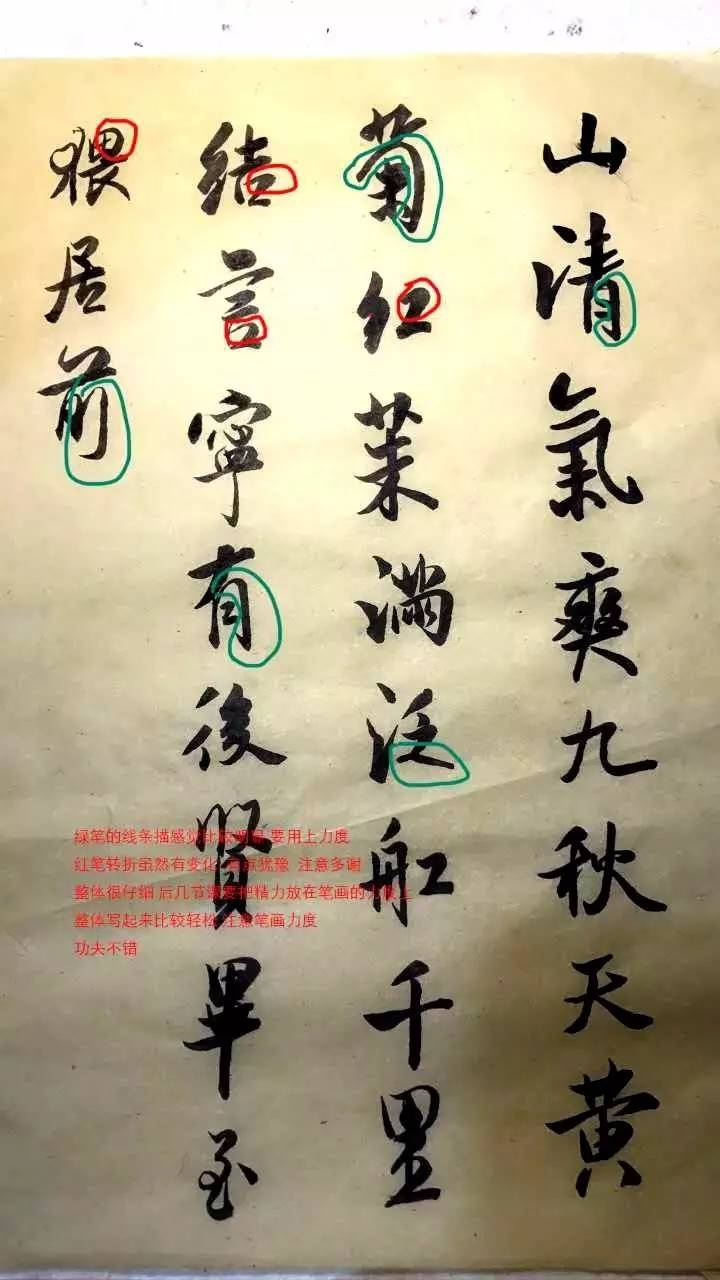 山清氣爽九秋天黄
菊红茱滿泛舡千里
结言寧有後賢畢至
猥居前
绿笔的线条描感觉比较明显 要用上力度
红笔转折虽然有变化 有点犹豫 注意多谢
整体很仔细 后几节课要把精力放在笔画的力度上
整体写起来比较轻松 注意笔画力度
功夫不错